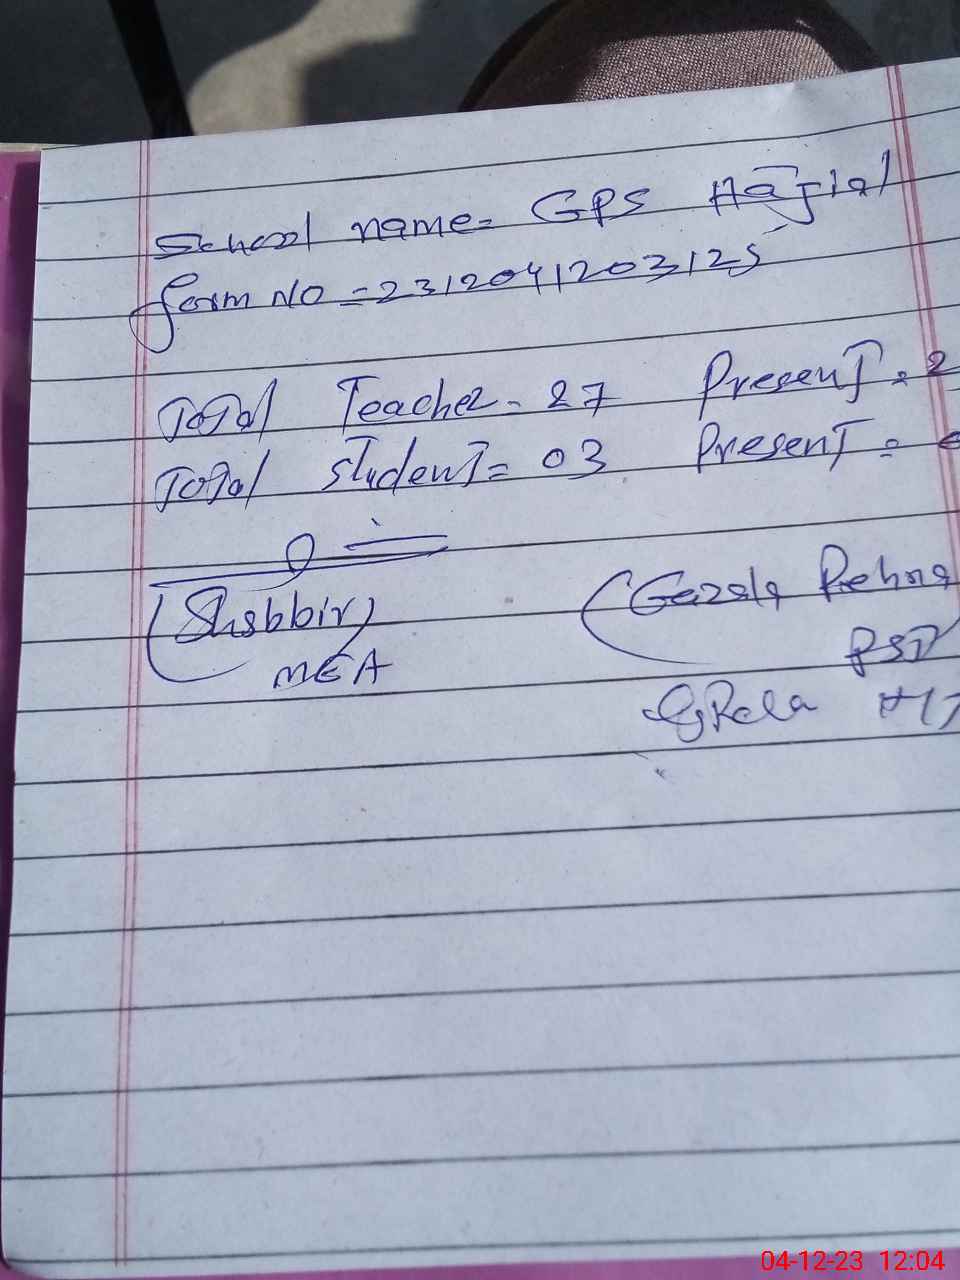 School name = GPS Hajial
form NO = 2312041203125
Total Teacher - 27 Present = 2
Total student = 03 Present =
(Shabbir) (Gezala Rehna
MEA PST
04-12-23 12:04